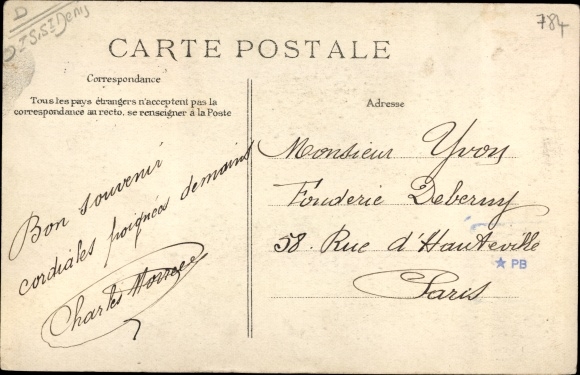 D
St Denis
784
CARTE POSTALE
Correspondance
Tous les pays étrangers n'acceptent pas la
correspondance au recto, se renseigner à la Poste
Adresse
Bon souvenir
cordiales poignées de mains
Charles
Monsieur Yvon
Fonderie Deberny
58. Rue d'Hauteville
Paris
PB